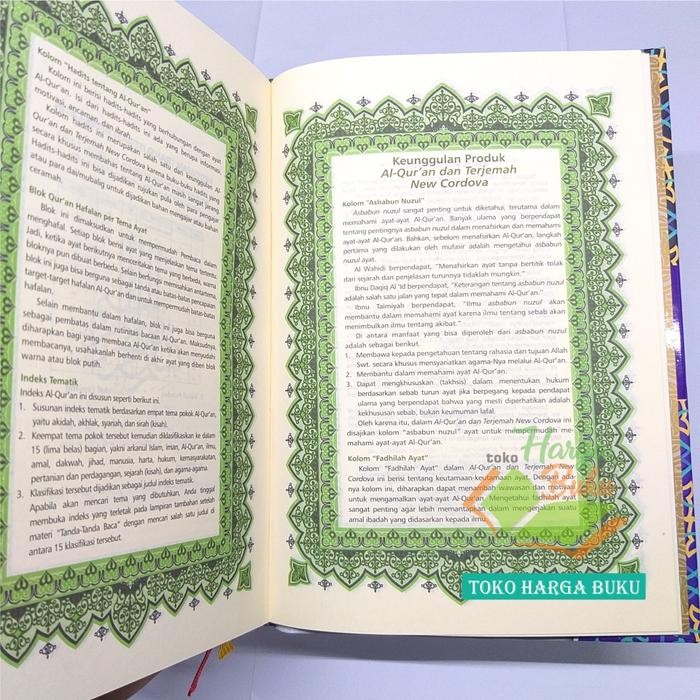 Kolom "Hadits tentang Al-Qur'an"
Kolom ini berisi hadits-hadits yang berhubungan dengan ayat
Al-Qur'an. Isi dari hadits-hadits ini ada yang berupa informasi,
motivasi, ancaman, dan ibrah.
Kolom hadits ini merupakan salah satu dari keunggulan Al-
Qur'an dan Terjemah New Cordova karena buku-buku hadits yang
secara khusus membahas tentang Al-Qur'an masih sangat jarang.
Hadits-hadits ini bisa dijadikan rujukan pula oleh para pengajar
atau para dai/mubalig untuk dijadikan bahan mengajar atau bahan
ceramah.
Blok Qur'an Hafalan per Tema Ayat
Blok ini dimaksudkan untuk mempermudah Pembaca dalam
menghafal. Setiap blok berisi ayat yang menjelaskan tema tertentu.
Jadi, ketika ayat berikutnya menceritakan tema yang berbeda, warna
bloknya pun dibuat berbeda. Selain berfungsi memisahkan antartema,
blok ini juga bisa berguna sebagai tanda atau batas-batas pencapaian
target-target hafalan Al-Qur'an dan untuk mempermudah batas-batas
hafalan.
Selain membantu dalam hafalan, blok ini juga bisa berguna
sebagai pembatas dalam rutinitas bacaan Al-Qur'an. Maksudnya,
diharapkan bagi yang membaca Al-Qur'an ketika akan menyudahi
membacanya, usahakanlah berhenti di akhir ayat yang diberi blok
warna atau blok putih.
Indeks Tematik
Indeks Al-Qur'an ini disusun seperti berikut ini.
1. Susunan indeks tematik berdasarkan empat tema pokok Al-Qur'an,
yaitu akidah, akhlak, syariah, dan sirah (kisah).
2. Keempat tema pokok tersebut kemudian diklasifikasikan ke dalam
15 (lima belas) bagian, yakni arkanul Islam, iman, Al-Qur'an, ilmu,
amal, dakwah, jihad, manusia, harta, hukum, kemasyarakatan,
pertanian dan perdagangan, sejarah (kisah), dan agama-agama.
3. Klasifikasi tersebut dijadikan sebagai judul indeks tematik.
Apabila akan mencari tema yang dibutuhkan, Anda tinggal
membuka indeks yang terletak pada lampiran tambahan setelah
materi "Tanda-Tanda Baca" dengan mencari salah satu judul di
antara 15 klasifikasi tersebut.
Keunggulan Produk
Al-Qur'an dan Terjemah
New Cordova
Kolom "Asbabun Nuzul"
Asbabun nuzul sangat penting untuk diketahui, terutama dalam
memahami ayat-ayat Al-Qur'an. Banyak ulama yang berpendapat
tentang pentingnya asbabun nuzul dalam menafsirkan dan memahami
ayat-ayat Al-Qur'an. Bahkan, sebelum menafsirkan Al-Qur'an, langkah
pertama yang dilakukan oleh mufasir adalah mengetahui asbabun
nuzul ayat.
Al Wahidi berpendapat, "Menafsirkan ayat tanpa bertitik tolak
dari sejarah dan penjelasan turunnya tidaklah mungkin."
Ibnu Daqiq Al 'Id berpendapat, "Keterangan tentang asbabun nuzul
adalah salah satu jalan yang tepat dalam memahami Al-Qur'an."
Ibnu Taimiyah berpendapat, "Ilmu asbabun nuzul akan
membantu dalam memahami ayat karena ilmu tentang sebab akan
menimbulkan ilmu tentang akibat."
Di antara manfaat yang bisa diperoleh dari asbabun nuzul
adalah sebagai berikut.
1. Membawa kepada pengetahuan tentang rahasia dan tujuan Allah
Swt. secara khusus menysyariatkan agama-Nya melalui Al-Qur'an.
2. Membantu dalam memahami ayat Al-Qur'an.
3. Dapat mengkhususkan (takhsis) dalam menentukan hukum
berdasarkan sebab turun ayat jika berpegang kepada pendapat
ulama yang berpendapat bahwa yang mesti diperhatikan adalah
kekhususan sebab, bukan keumuman lafal.
Oleh karena itu, dalam Al-Qur'an dan Terjemah New Cordova ini
disajikan kolom "asbabun nuzul" ayat untuk mempermudah me-
mahami ayat-ayat Al-Qur'an.
Kolom "Fadhilah Ayat"
Kolom "Fadhilah Ayat" dalam Al-Qur'an dan Terjemah New
Cordova ini berisi tentang keutamaan-keutamaan ayat. Dengan ada-
nya kolom ini, diharapkan dapat menambah wawasan dan motivasi
untuk mengamalkan ayat-ayat Al-Qur'an. Mengetahui fadhilah ayat
sangat penting agar lebih memantapkan dalam mengerjakan suatu
amal ibadah yang didasarkan kepada ilmu.
toko Harga Buku
TOKO HARGA BUKU